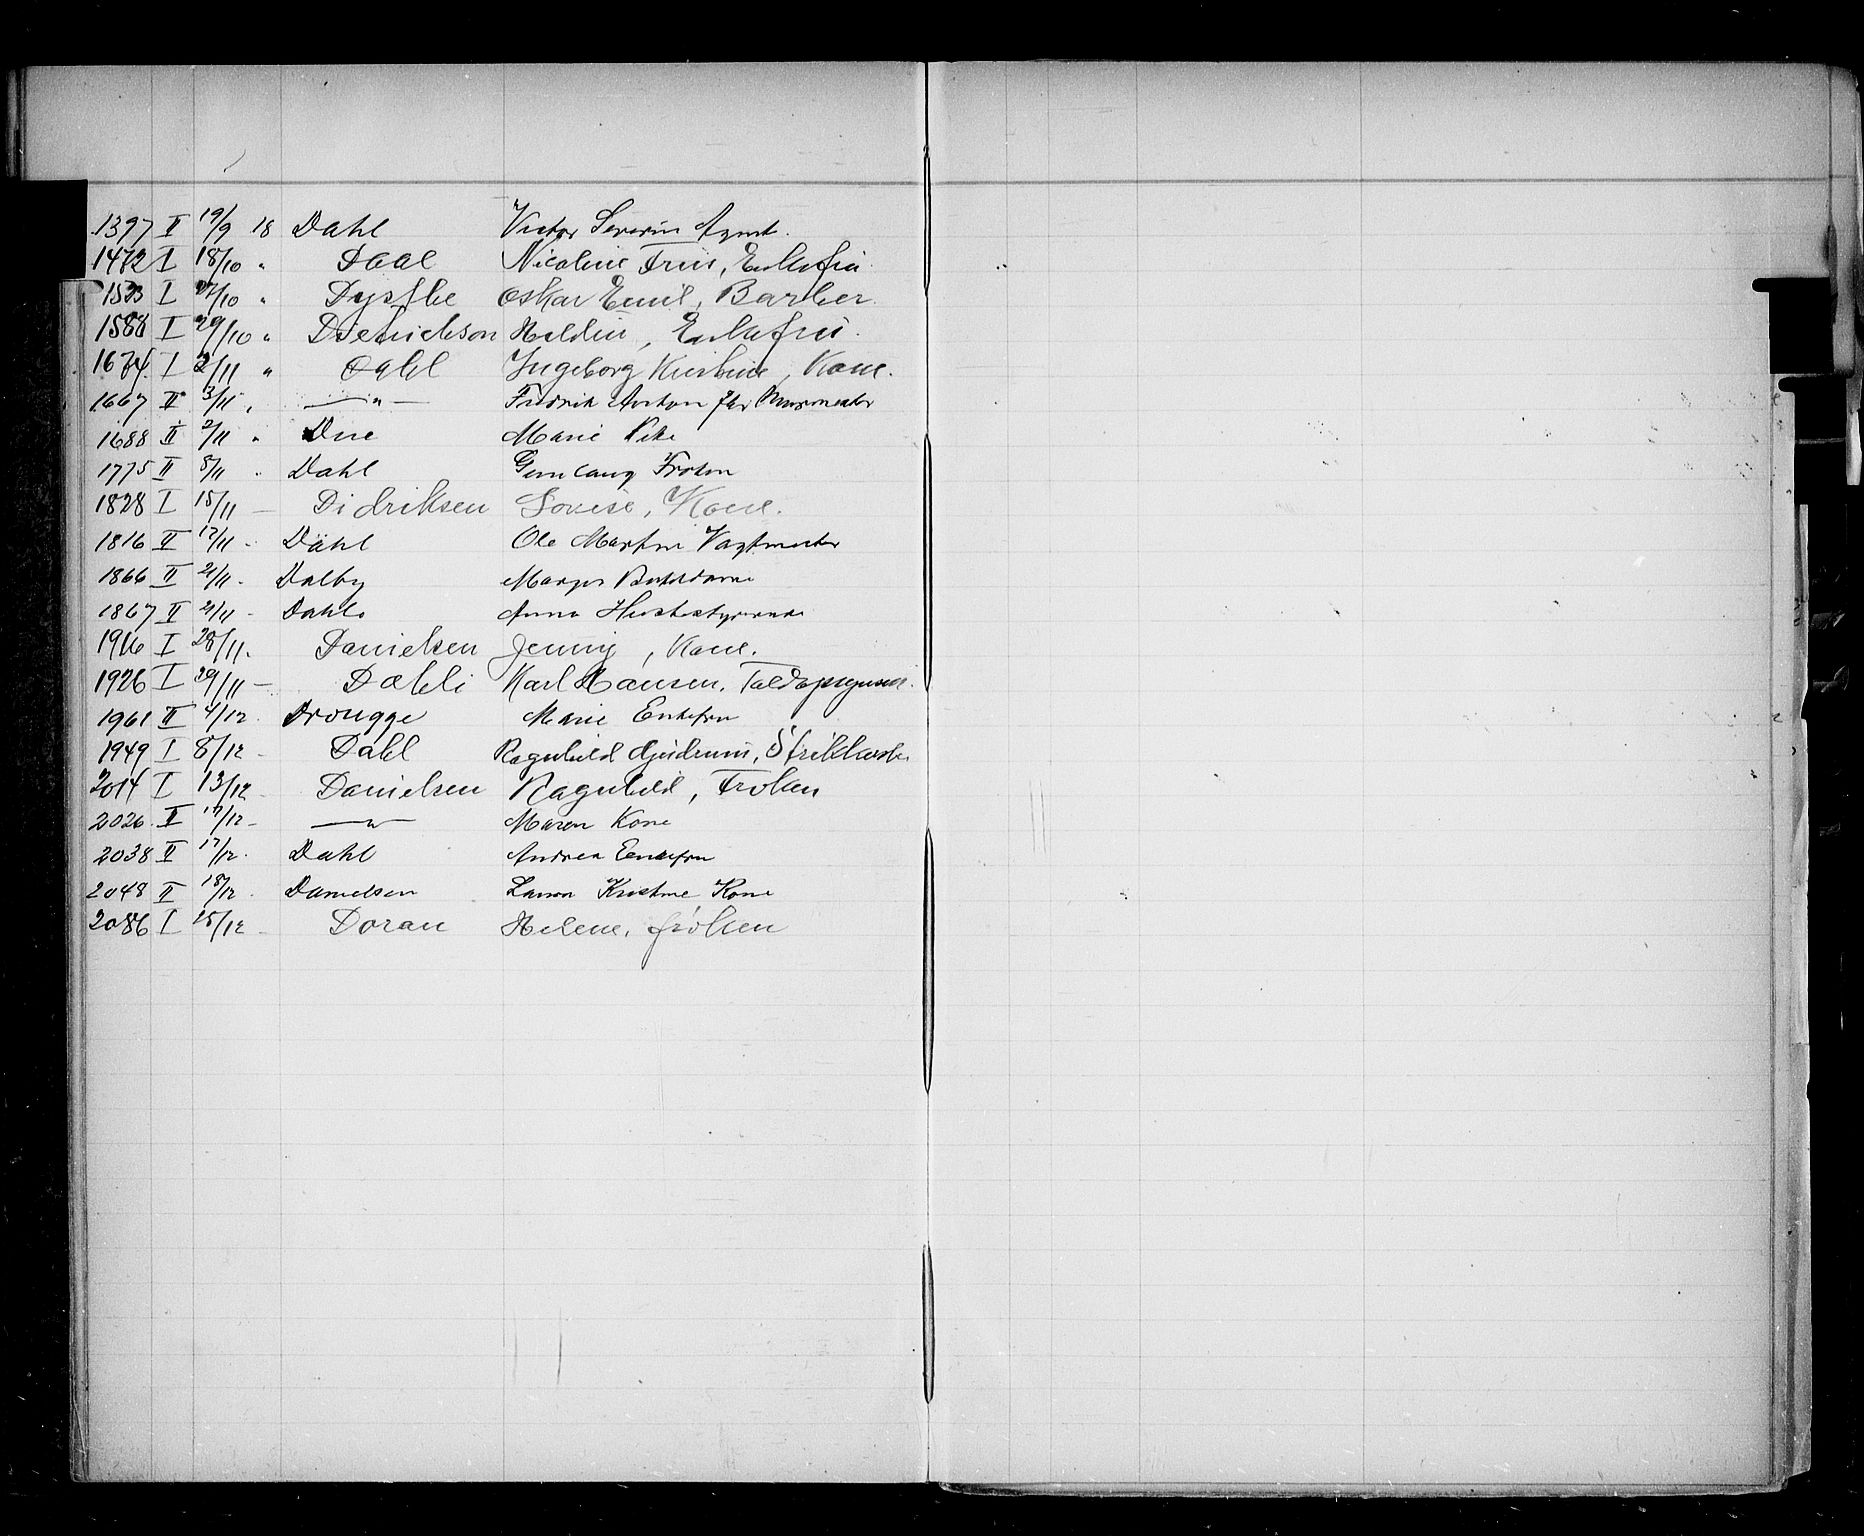 1397 II 19/9 18 Dahl Victor Severin Agent.
1472 I 18/10 " Daae Nicoline Friis, Enkefru.
1523 I 27/10 " Oskar Emil, Barber.
1588 I 29/10 " Diedrickson Enkefru.
1674. I 2/11 " Dahl Ingeborg Kristine, Kone.
1667 II 3/11 " —"— Fredrik Anton
1688 II 7/11 " Due Marie Pike
1775 II 8/11 " Dahl Gunlaug Frøken
1828 I 15/11 — Didriksen Lovise, Kone.
1816 II 17/11 - Dahl Ole Martin Vagtmester
1866 II 21/11 - Dalby
1867 II 21/11 - Dahle Anna Husbestyrerinde
1916 I 28/11. Danielsen Jenny, Kone.
1926 I 29/11 — Dæhli Karl Hansen, Toldopsynsm.
1961 II 4/12. Drougge Marie Enkefru
1949 I 8/12 - Dahl Ragnhild Gjudrun,
2014 I 13/12 - Danielsen Ragnhild, Frøken
2026. II 17/12 - —"— Maren Kone
2038 II 17/12. Dahl Andrea Enkefru
2048 II 18/12. Danielsen Laura Kristine Kone
2086 I 25/12 - Doran Helene, frøken